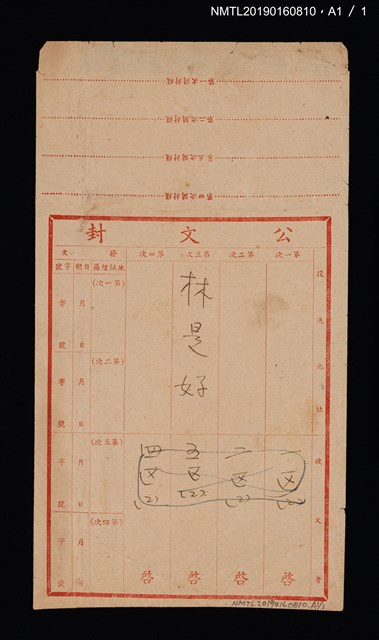 NMTL20190160810・A1 / 1
第一次開封線
第二次開封線
第三次開封線
第四次開封線
公文封
第一次
第二次
第三次
第四次
發文
地址信箱
日期
字號
投遞地址
受文者
(第一次)
月 日
字 號
(第二次)
月 日
字 號
(第三次)
月 日
字 號
(第四次)
月 日
字 號
林是好
一区(2)
二区(2)
五区(2)
四区(2)
啓
啓
啓
啓
NMTL20190160810.A1/1